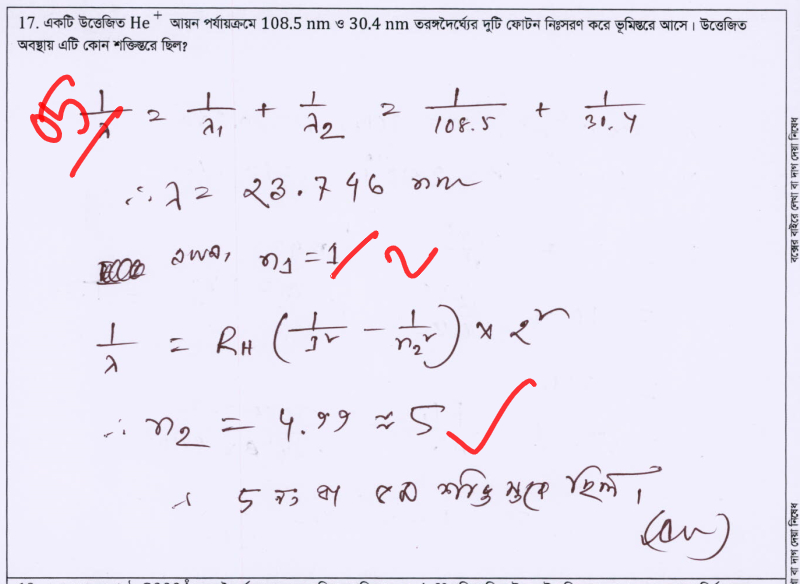 17. একটি উত্তেজিত He⁺ আয়ন পর্যায়ক্রমে 108.5 nm ও 30.4 nm তরঙ্গদৈর্ঘ্যের দুটি ফোটন নিঃসরণ করে ভূমিস্তরে আসে। উত্তেজিত
অবস্থায় এটি কোন শক্তিস্তরে ছিল?
05
1/λ = 1/λ₁ + 1/λ₂ = 1/108.5 + 1/30.4
∴ λ = 23.746 nm
n₁ = 1
1/λ = R_H (1/1² − 1/n₂²) × 2²
∴ n₂ = 4.99 ≈ 5
∴ 5 নং বা ৫ম শক্তি স্তরে ছিল।
(Ans)
বক্সের বাইরে লেখা বা দাগ দেয়া নিষেধ
বা দাগ দেয়া নিষেধ